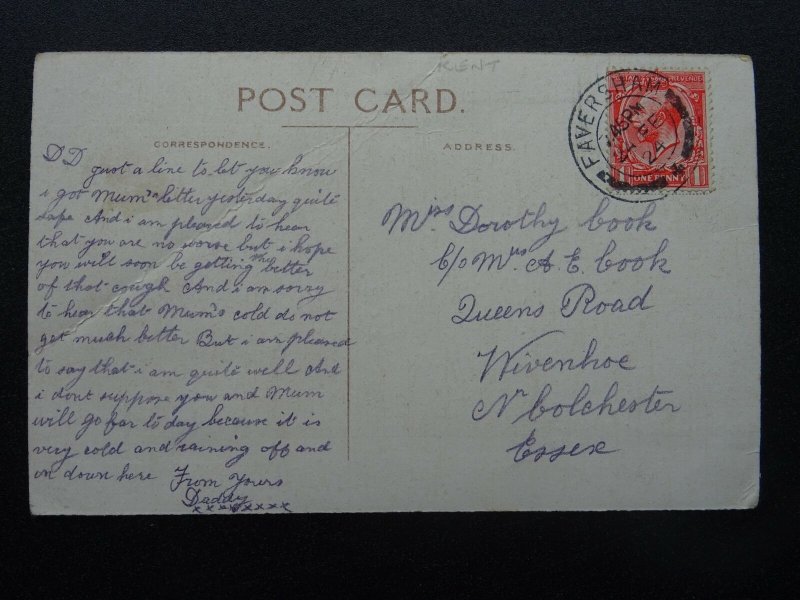 KENT
POST CARD.
CORRESPONDENCE.
D D just a line to let you know
i got Mum's letter yesterday quite
safe And i am pleased to hear
that you are no worse but i hope
you will soon be getting better
of that cough And i am sorry
to hear that Mum's cold do not
get much better But i am pleased
to say that i am quite well And
i dont suppose you and Mum
will go far to day because it is
very cold and raining off and
on down here From Yours
Daddy
xxxxxxxxx
ADDRESS.
FAVERSHAM
FE
24
ONE PENNY
1 1
Miss Dorothy Cook
C/o Mrs A. E. Cook
Queens Road
Wivenhoe
Nr Colchester
Essex